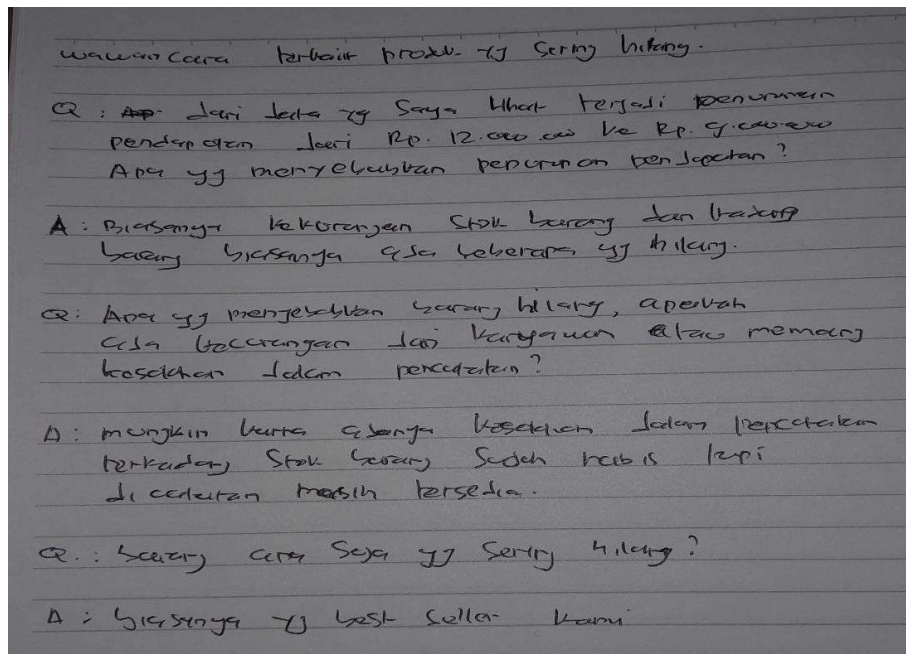 wawancara terkait produk yg sering hilang.
Q : dari data yg saya lihat terjadi penurunan
pendapatan dari Rp. 12.000.000 ke Rp. 9.000.000
Apa yg menyebabkan penurunan pendapatan?
A : Biasanya kekurangan stok barang dan
barang biasanya ada beberapa yg hilang.
Q : Apa yg menyebabkan barang hilang, apakah
ada kecurangan dari karyawan atau memang
kesalahan dalam pencatatan?
A : mungkin karna adanya kesalahan dalam pencatatan
terkadang stok barang sudah habis tapi
di catatan masih tersedia.
Q : barang apa saja yg sering hilang?
A : biasanya yg best seller kami